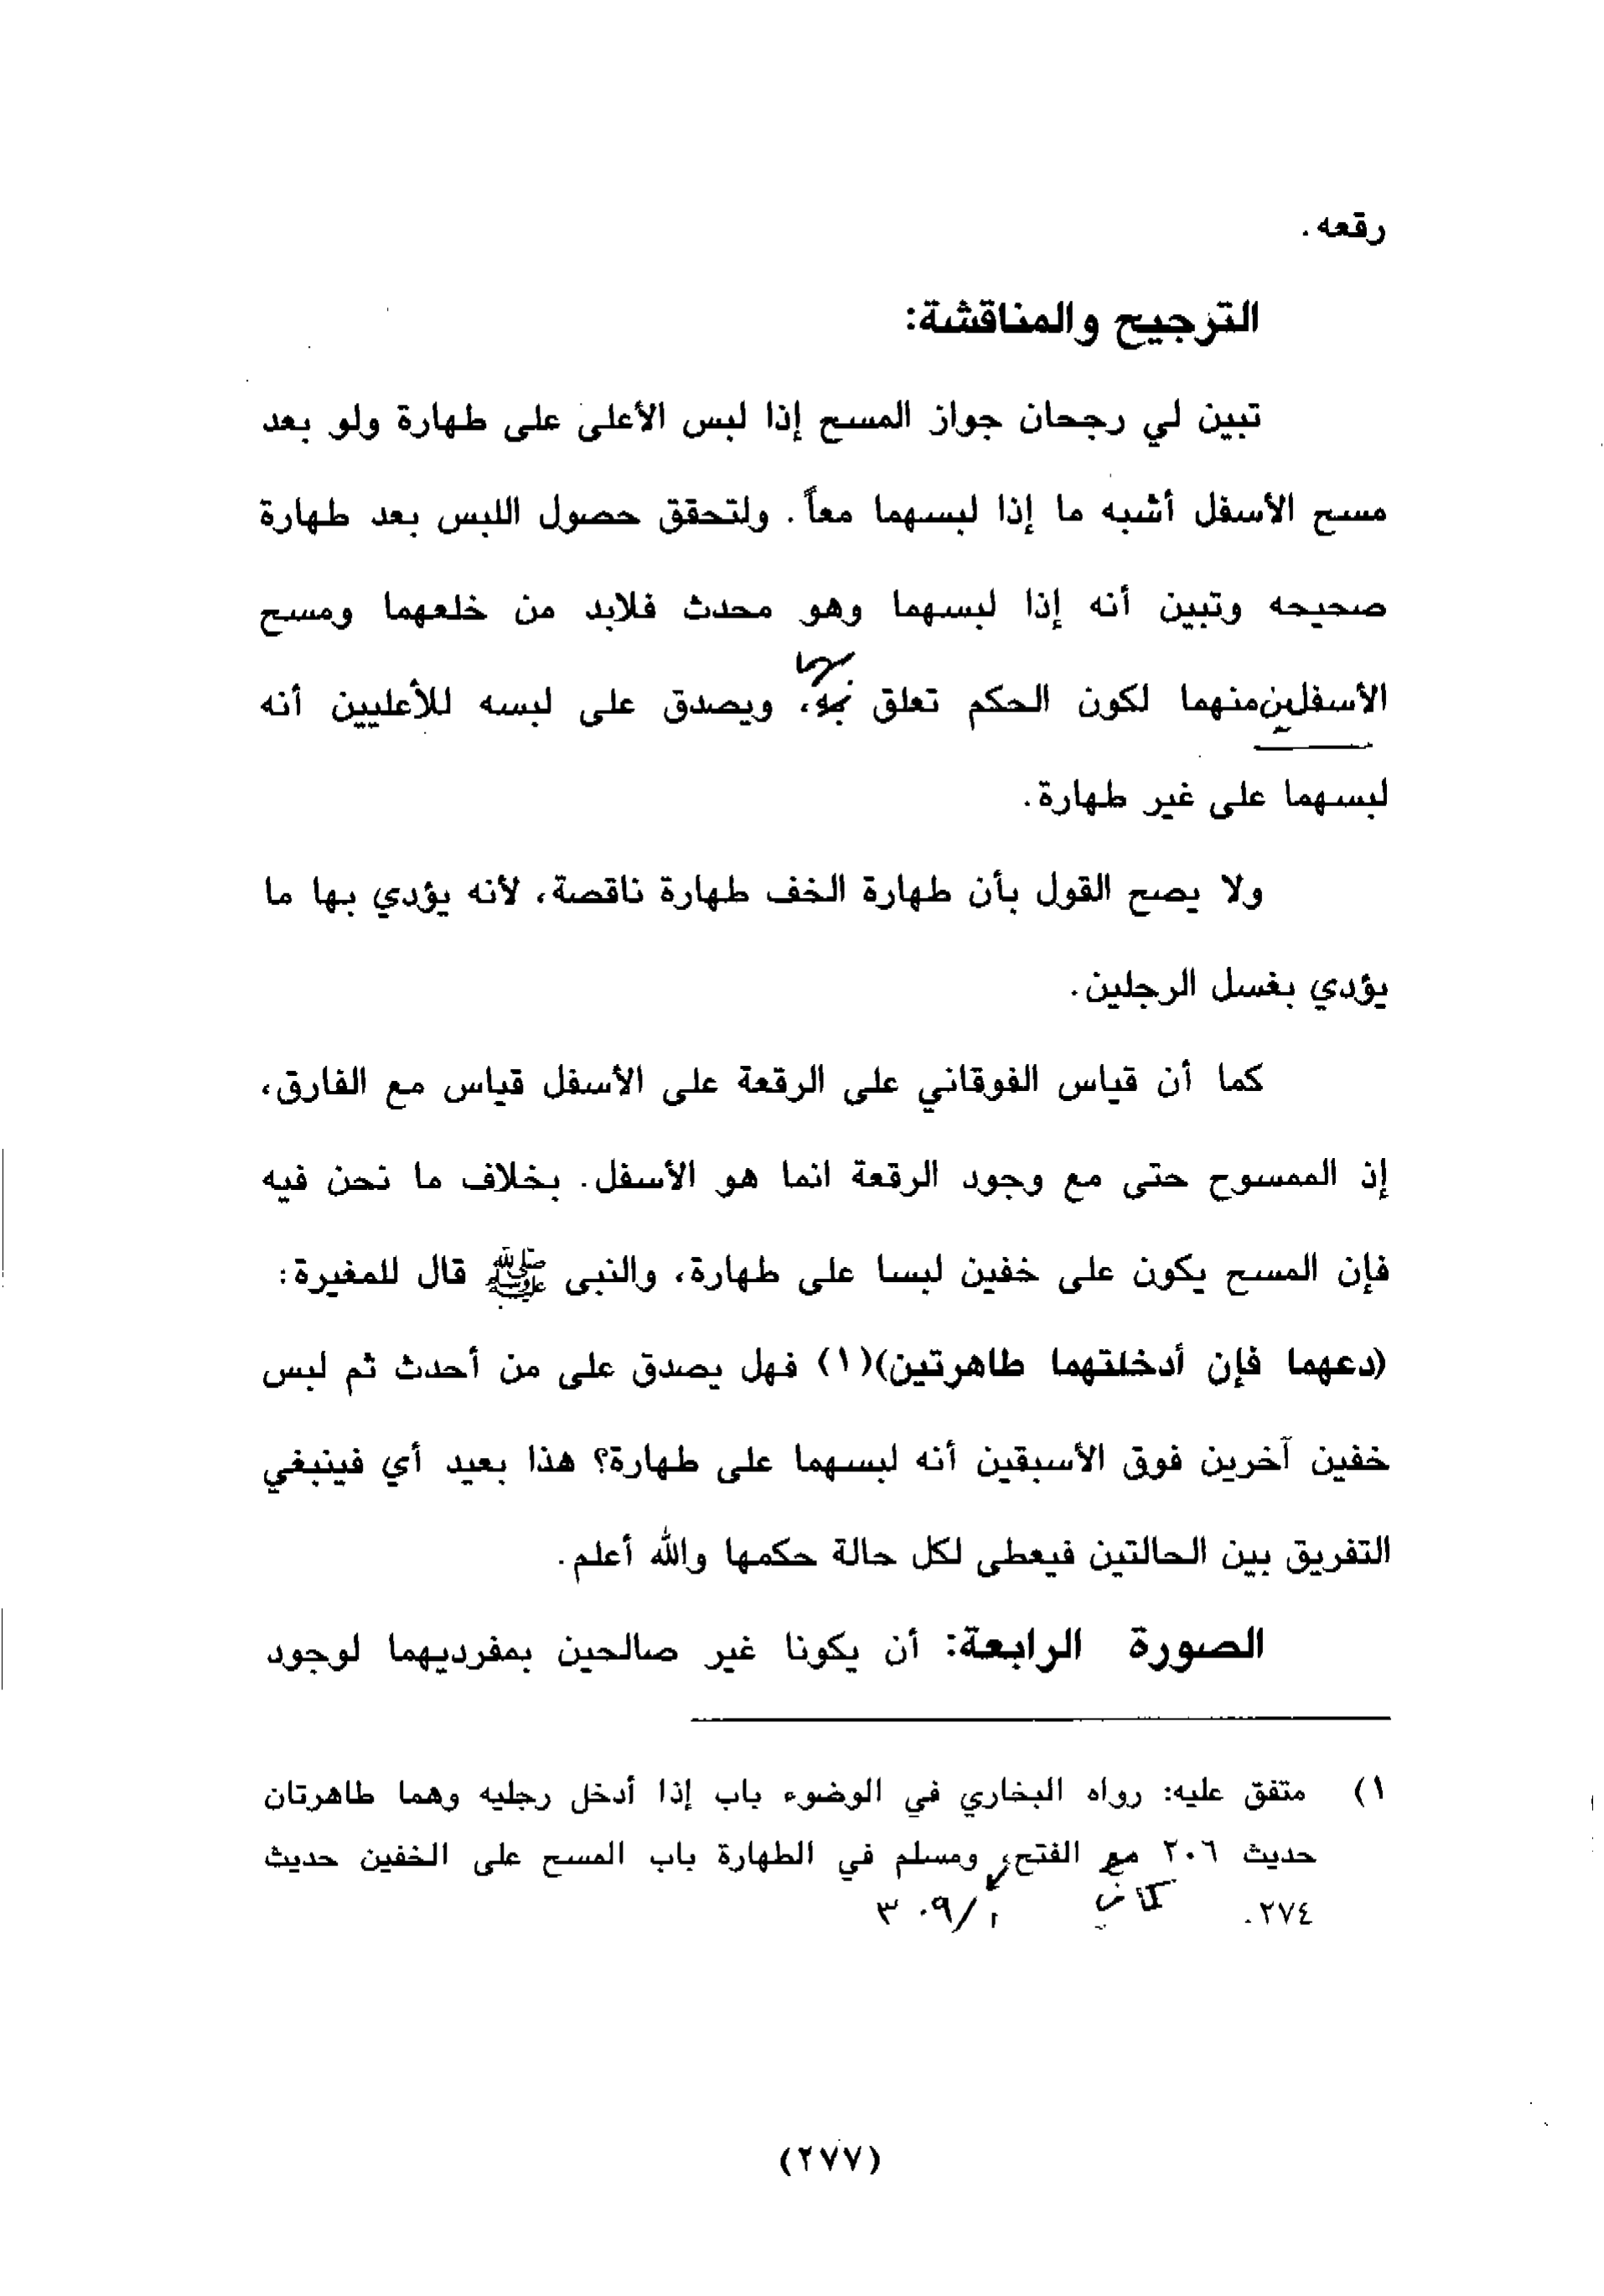 رقعه.
الترجيح والمناقشة:
تبين لي رجحان جواز المسح إذا لبس الأعلى على طهارة ولو بعد
مسح الأسفل أشبه ما إذا لبسهما معاً. ولتحقق حصول اللبس بعد طهارة
صحيحه وتبين أنه إذا لبسهما وهو محدث فلابد من خلعهما ومسح
بهما
الأسفلين منهما لكون الحكم تعلق به، ويصدق على لبسه للأعليين أنه
لبسهما على غير طهارة.
ولا يصح القول بأن طهارة الخف طهارة ناقصة، لأنه يؤدي بها ما
يؤدي بغسل الرجلين.
كما أن قياس الفوقاني على الرقعة على الأسفل قياس مع الفارق،
إذ الممسوح حتى مع وجود الرقعة انما هو الأسفل. بخلاف ما نحن فيه
فإن المسح يكون على خفين لبسا على طهارة، والنبى ﷺ قال للمغيرة:
(دعهما فإن أدخلتهما طاهرتين)(١) فهل يصدق على من أحدث ثم لبس
خفين آخرين فوق الأسبقين أنه لبسهما على طهارة؟ هذا بعيد أي فينبغي
التفريق بين الحالتين فيعطى لكل حالة حكمها والله أعلم.
الصورة الرابعة: أن يكونا غير صالحين بمفرديهما لوجود
١) متفق عليه: رواه البخاري في الوضوء باب إذا أدخل رجليه وهما طاهرتان
حديث ٢٠٦ مع الفتح، ومسلم في الطهارة باب المسح على الخفين حديث
٢٧٤. ٣٠٩/١
(٢٧٧)